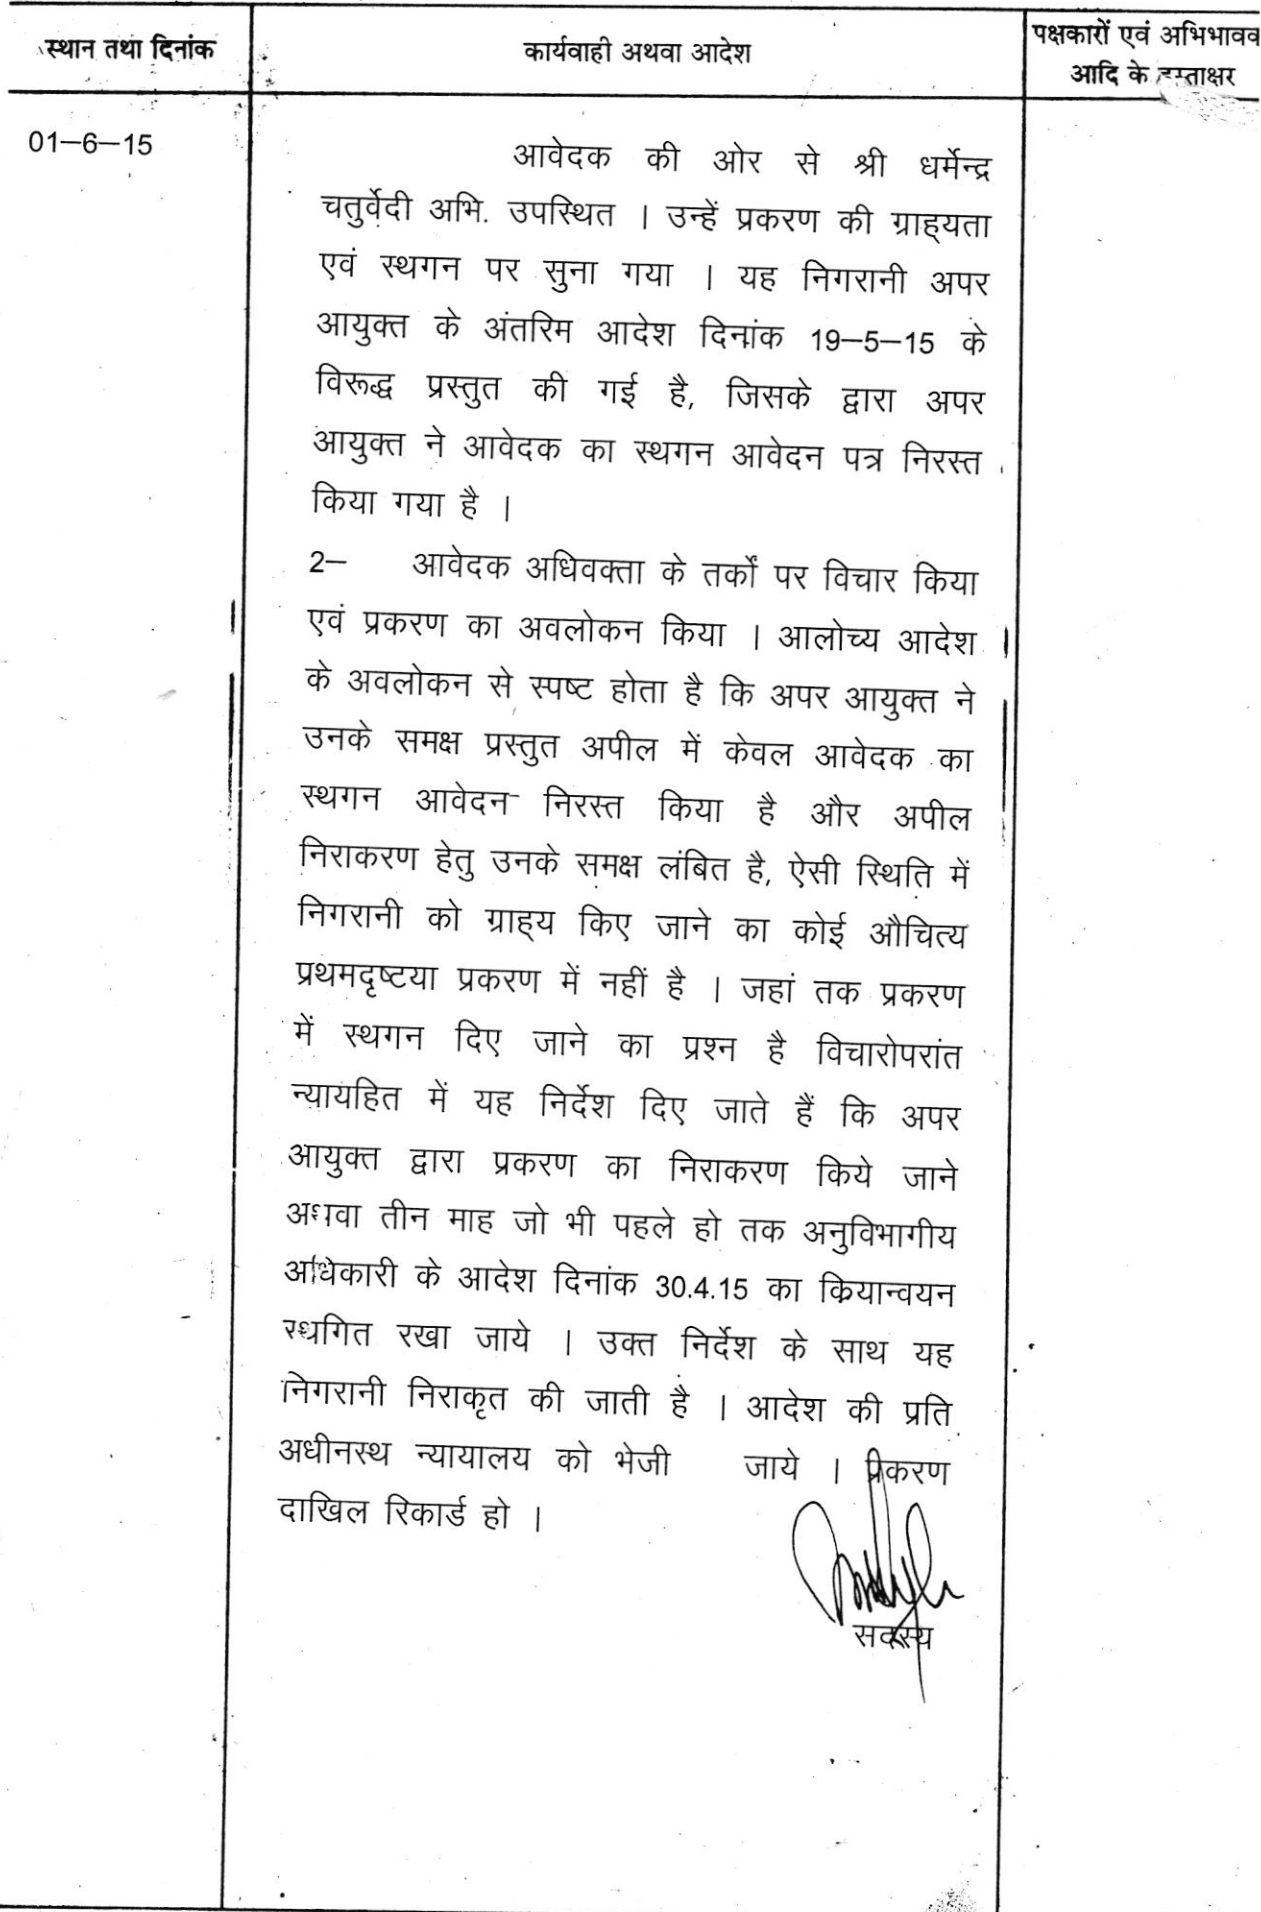 स्थान तथा दिनांक
कार्यवाही अथवा आदेश
पक्षकारों एवं अभिभावव
आदि के हस्ताक्षर
01–6–15
आवेदक की ओर से श्री धर्मेन्द्र
चतुर्वेदी अभि. उपस्थित । उन्हें प्रकरण की ग्राह्यता
एवं स्थगन पर सुना गया । यह निगरानी अपर
आयुक्त के अंतरिम आदेश दिनांक 19–5–15 के
विरूद्ध प्रस्तुत की गई है, जिसके द्वारा अपर
आयुक्त ने आवेदक का स्थगन आवेदन पत्र निरस्त
किया गया है ।
2– आवेदक अधिवक्ता के तर्कों पर विचार किया
एवं प्रकरण का अवलोकन किया । आलोच्य आदेश
के अवलोकन से स्पष्ट होता है कि अपर आयुक्त ने
उनके समक्ष प्रस्तुत अपील में केवल आवेदक का
स्थगन आवेदन निरस्त किया है और अपील
निराकरण हेतु उनके समक्ष लंबित है, ऐसी स्थिति में
निगरानी को ग्राह्य किए जाने का कोई औचित्य
प्रथमदृष्टया प्रकरण में नहीं है । जहां तक प्रकरण
में स्थगन दिए जाने का प्रश्न है विचारोपरांत
न्यायहित में यह निर्देश दिए जाते हैं कि अपर
आयुक्त द्वारा प्रकरण का निराकरण किये जाने
अथवा तीन माह जो भी पहले हो तक अनुविभागीय
अधिकारी के आदेश दिनांक 30.4.15 का कियान्वयन
स्थगित रखा जाये । उक्त निर्देश के साथ यह
निगरानी निराकृत की जाती है । आदेश की प्रति
अधीनस्थ न्यायालय को भेजी जाये । प्रकरण
दाखिल रिकार्ड हो ।
सदस्य